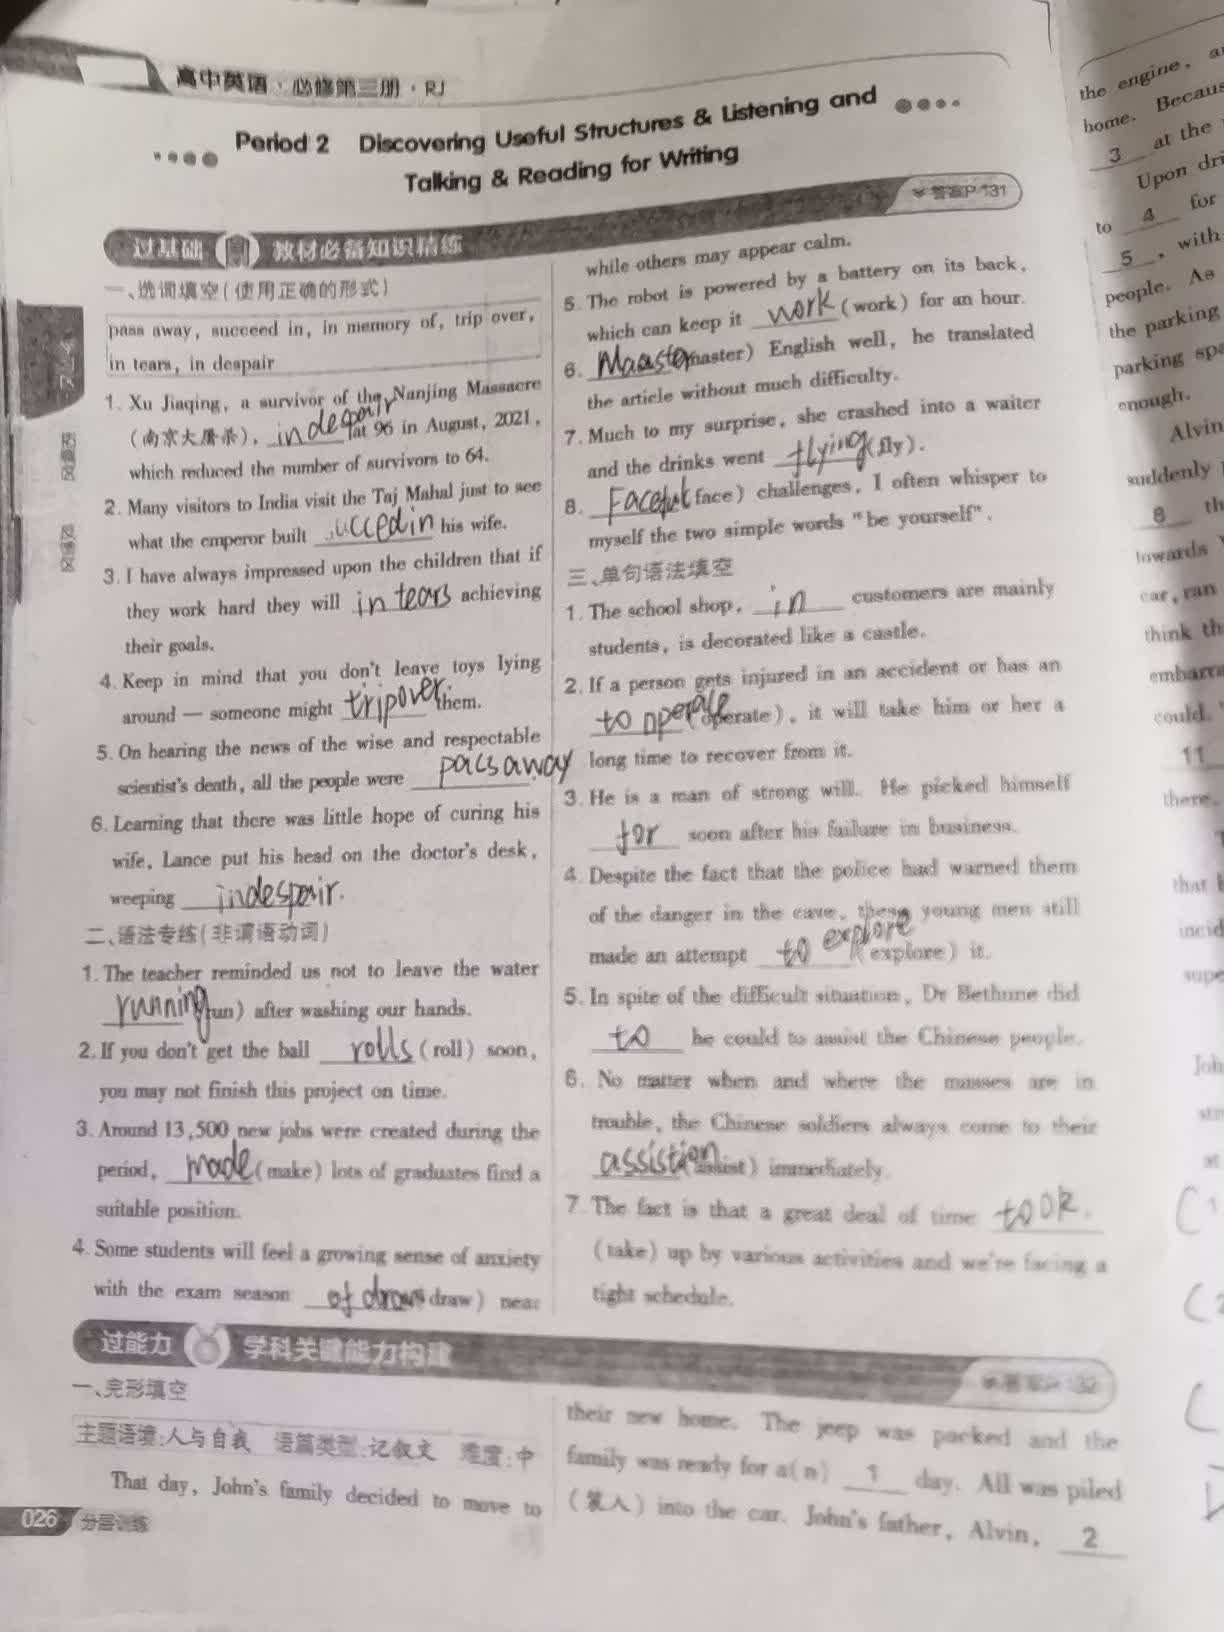 高中英语·必修第三册·RJ
Period 2 Discovering Useful Structures & Listening and
Talking & Reading for Writing
答案P131
过基础 教材必备知识精练
一、选词填空(使用正确的形式)
pass away, succeed in, in memory of, trip over,
in tears, in despair
1. Xu Jiaqing, a survivor of the Nanjing Massacre
(南京大屠杀), in despair at 96 in August, 2021,
which reduced the number of survivors to 64.
2. Many visitors to India visit the Taj Mahal just to see
what the emperor built succed in his wife.
3. I have always impressed upon the children that if
they work hard they will in tears achieving
their goals.
4. Keep in mind that you don't leave toys lying
around — someone might trip over them.
5. On hearing the news of the wise and respectable
scientist's death, all the people were pass away.
6. Learning that there was little hope of curing his
wife, Lance put his head on the doctor's desk,
weeping in despair.
二、语法专练(非谓语动词)
1. The teacher reminded us not to leave the water
running (run) after washing our hands.
2. If you don't get the ball rolls (roll) soon,
you may not finish this project on time.
3. Around 13,500 new jobs were created during the
period, made (make) lots of graduates find a
suitable position.
4. Some students will feel a growing sense of anxiety
with the exam season of draws (draw) near
while others may appear calm.
5. The robot is powered by a battery on its back,
which can keep it work (work) for an hour.
6. Maaster (master) English well, he translated
the article without much difficulty.
7. Much to my surprise, she crashed into a waiter
and the drinks went flying (fly).
8. Faceful (face) challenges, I often whisper to
myself the two simple words "be yourself".
三、单句语法填空
1. The school shop, in customers are mainly
students, is decorated like a castle.
2. If a person gets injured in an accident or has an
to operate (operate), it will take him or her a
long time to recover from it.
3. He is a man of strong will. He picked himself
for soon after his failure in business.
4. Despite the fact that the police had warned them
of the danger in the cave, these young men still
made an attempt to explore (explore) it.
5. In spite of the difficult situation, Dr Bethune did
to he could to assist the Chinese people.
6. No matter when and where the masses are in
trouble, the Chinese soldiers always come to their
assistian (assist) immediately.
7. The fact is that a great deal of time took.
(take) up by various activities and we're facing a
tight schedule.
过能力 学科关键能力构建
一、完形填空
主题语境:人与自我 语篇类型:记叙文 难度:中
That day, John's family decided to move to
their new home. The jeep was packed and the
family was ready for a(n) 1 day. All was piled
(装入) into the car. John's father, Alvin, 2
026 分层训练
the engine,
home.
3 at the
Upon
to 4 for
5, with
people. As
the parking
parking
enough.
Alvin
suddenly
8
towards
car, ran
think
could.
11
there.